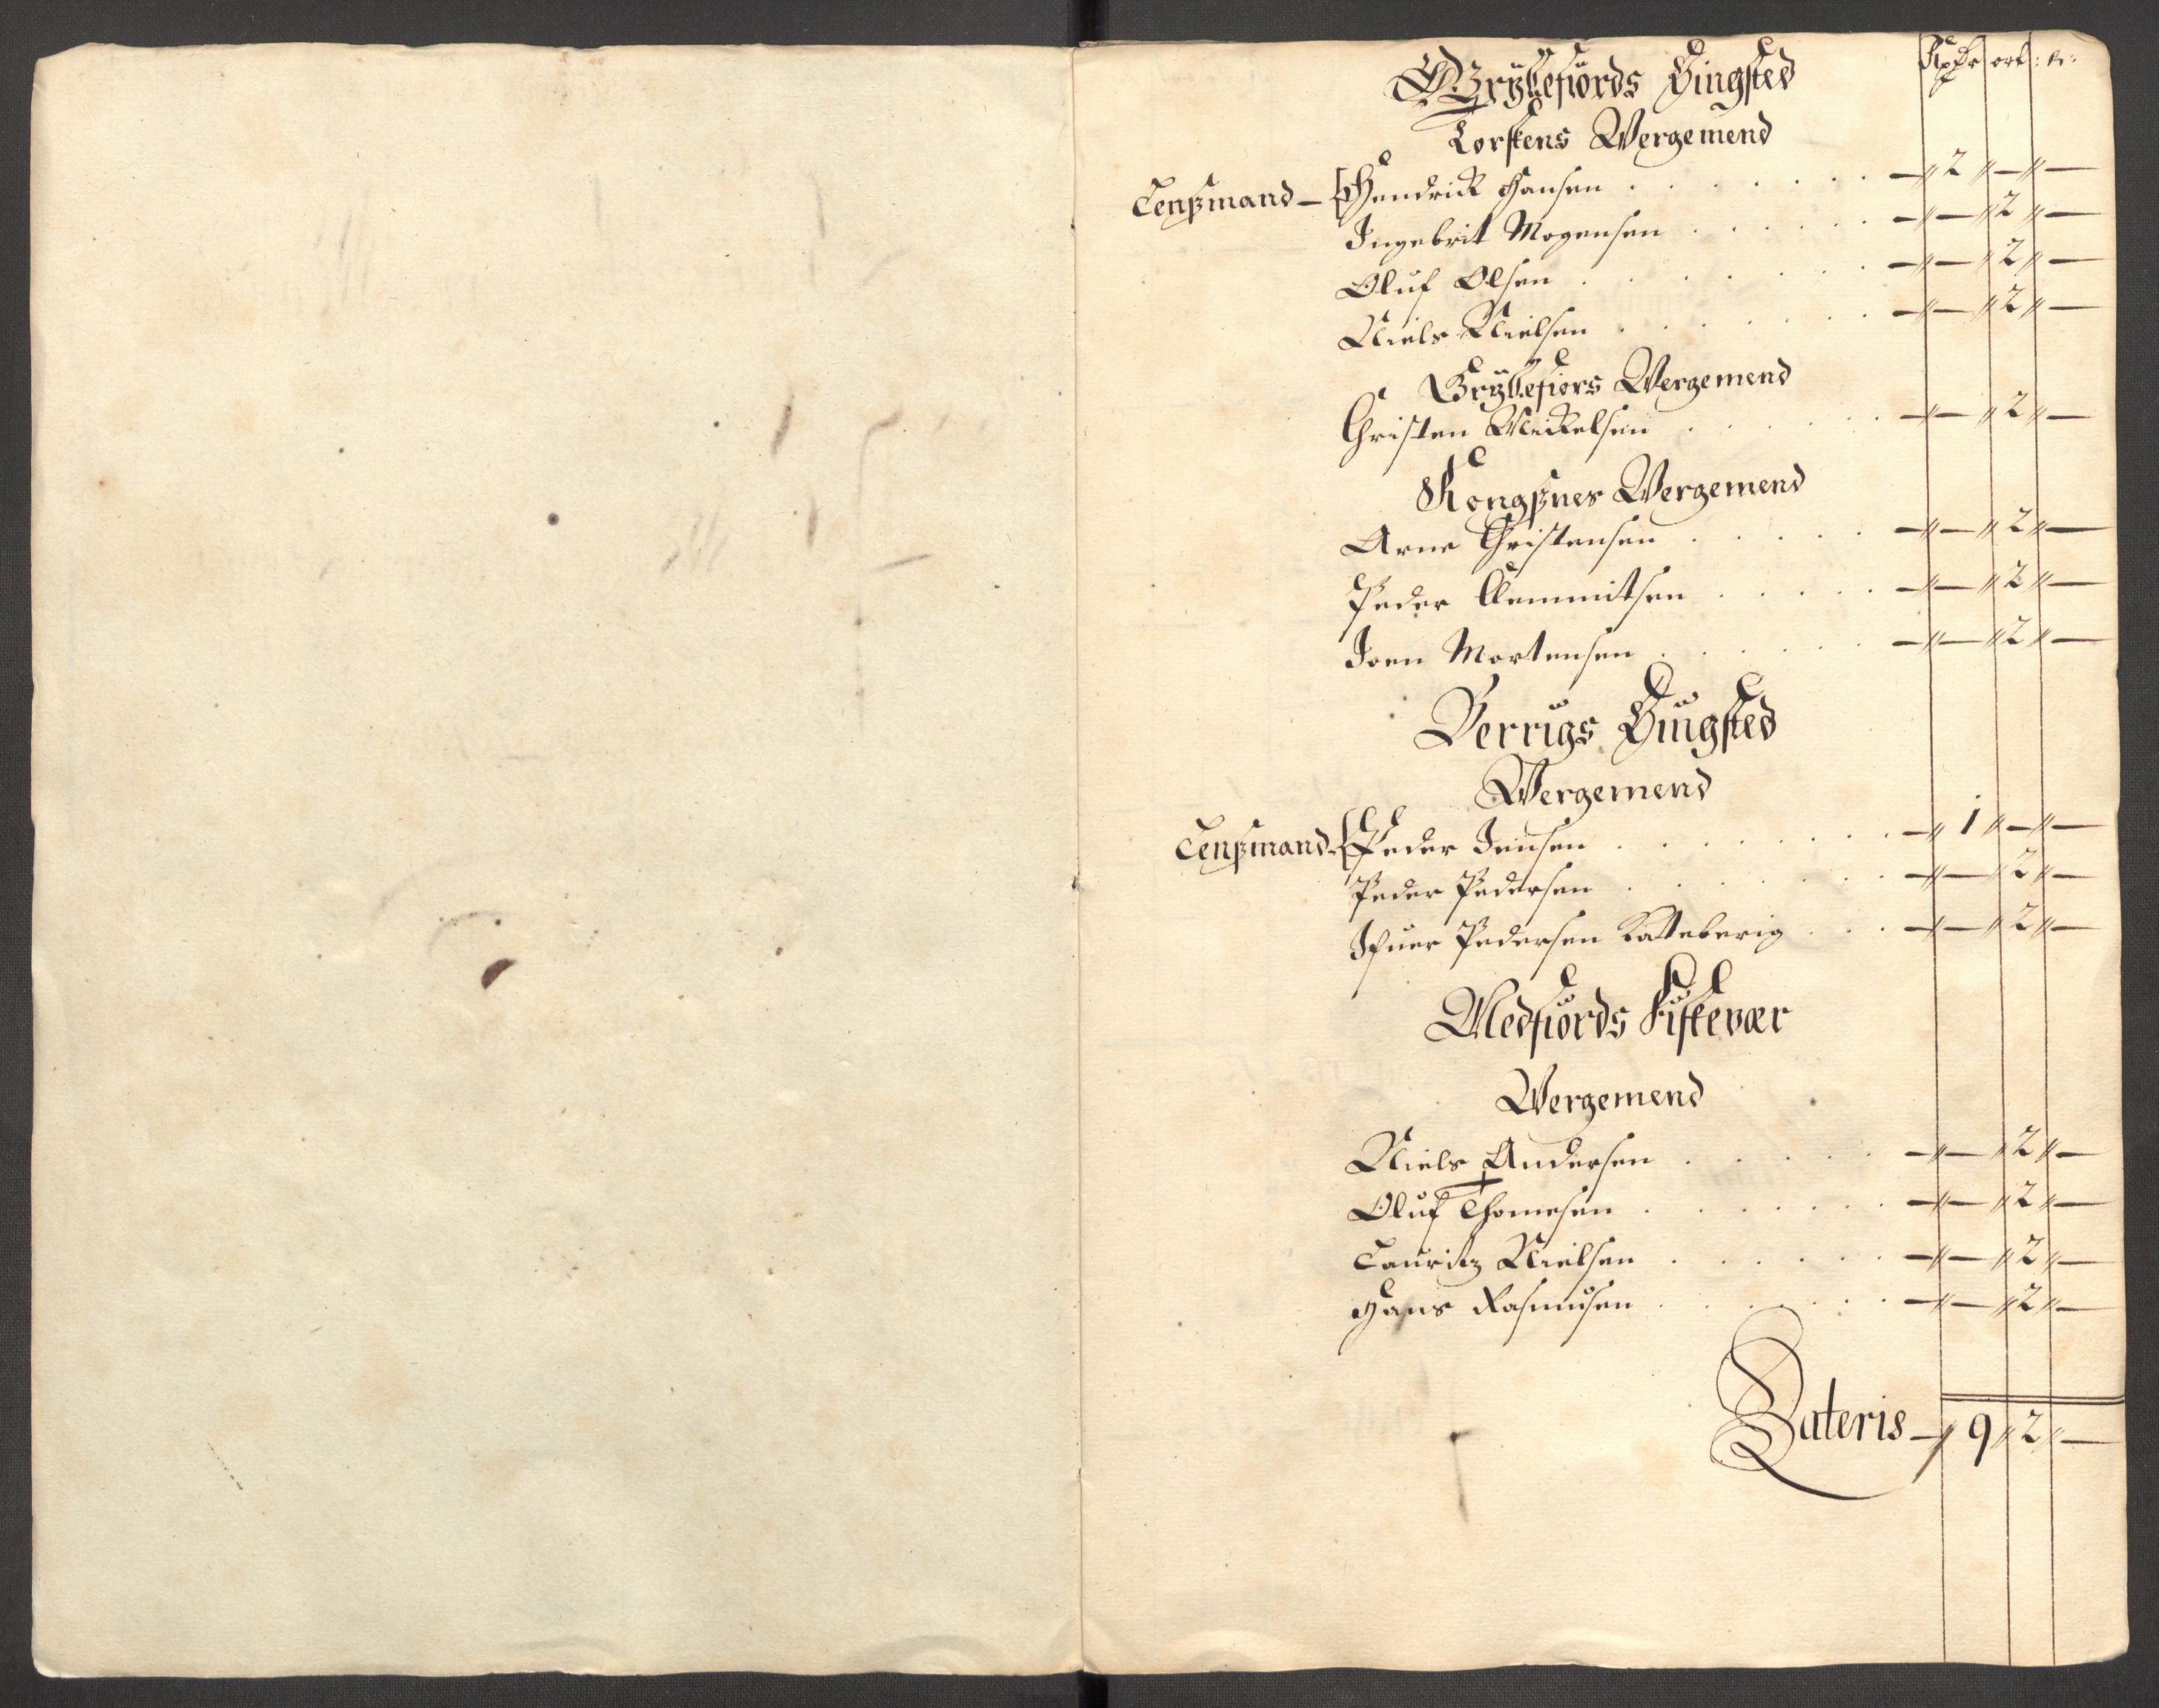 Rixdr ort: s:
Gryllefiords Tingsted
Torskens Wergemend
Lenßmand - Hendrick Hansen . . . . . . - 2 - -
Ingebrit Mogensen . . . . . - - 2 -
Oluf Olsen . . . . . . - - 2 -
Niels Nielsen . . . . . . - - 2 -
Gryllefiors Wergemend
Christen Mickelsen . . . . . - - 2 -
Kongßnes Wergemend
Arne Christensen . . . . . - - 2 -
Peder Clemmitsen . . . . - - 2 -
Joen Mortensen . . . . . . - - 2 -
Berrigs Tingsted
Wergemend
Lenßmand - Peder Jensen . . . . . . - 1 - -
Peder Pedersen . . . . . . - - 2 -
Ifuer Pedersen Katteberig . . - - 2 -
Medfiords Fiskevær
Wergemend
Niels Andersen . . . . . - - 2 -
Oluf Thomesen . . . . . . - - 2 -
Lauritz Nielsen . . . . . - - 2 -
Hans Rasmusen . . . . . . - - 2 -
Lateris - 9 2 -